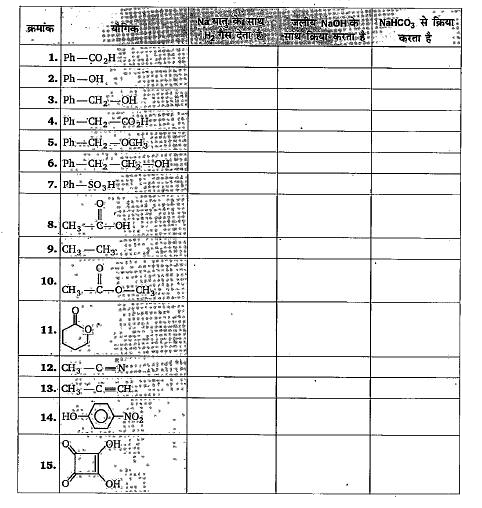 क्रमांक यौगिक Na धातु के साथ H₂ गैस देता है जलीय NaOH के साथ क्रिया करता है NaHCO₃ से क्रिया करता है
1. Ph—CO₂H
2. Ph—OH
3. Ph—CH₂—OH
4. Ph—CH₂—CO₂H
5. Ph—CH₂—OCH₃
6. Ph—CH₂—CH₂—OH
7. Ph—SO₃H
O
8. CH₃—C—OH
9. CH₃—CH₃
O
10. CH₃—C—O—CH₃
O
11. O
12. CH₃—C≡N
13. CH₃—C≡CH
14. HO—NO₂
O OH
15.
O OH